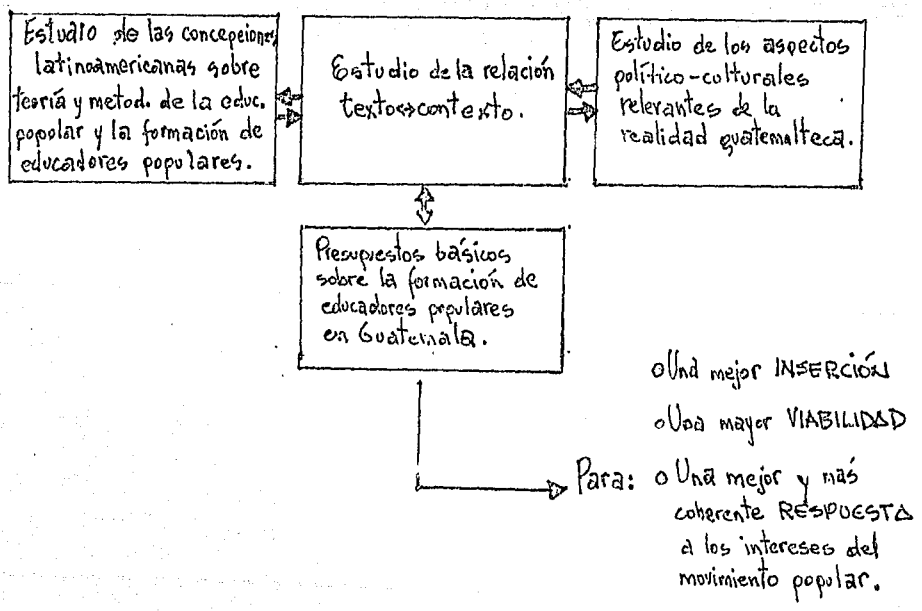 Estudio de las concepciones
latinoamericanas sobre
teoría y metod. de la educ.
popular y la formación de
educadores populares.
Estudio de la relación
texto⇔contexto.
Estudio de los aspectos
político-culturales
relevantes de la
realidad guatemalteca.
Presupuestos básicos
sobre la formación de
educadores populares
en Guatemala.
o Una mejor INSERCIÓN
o Una mayor VIABILIDAD
Para: o Una mejor y más
coherente RESPUESTA
a los intereses del
movimiento popular.